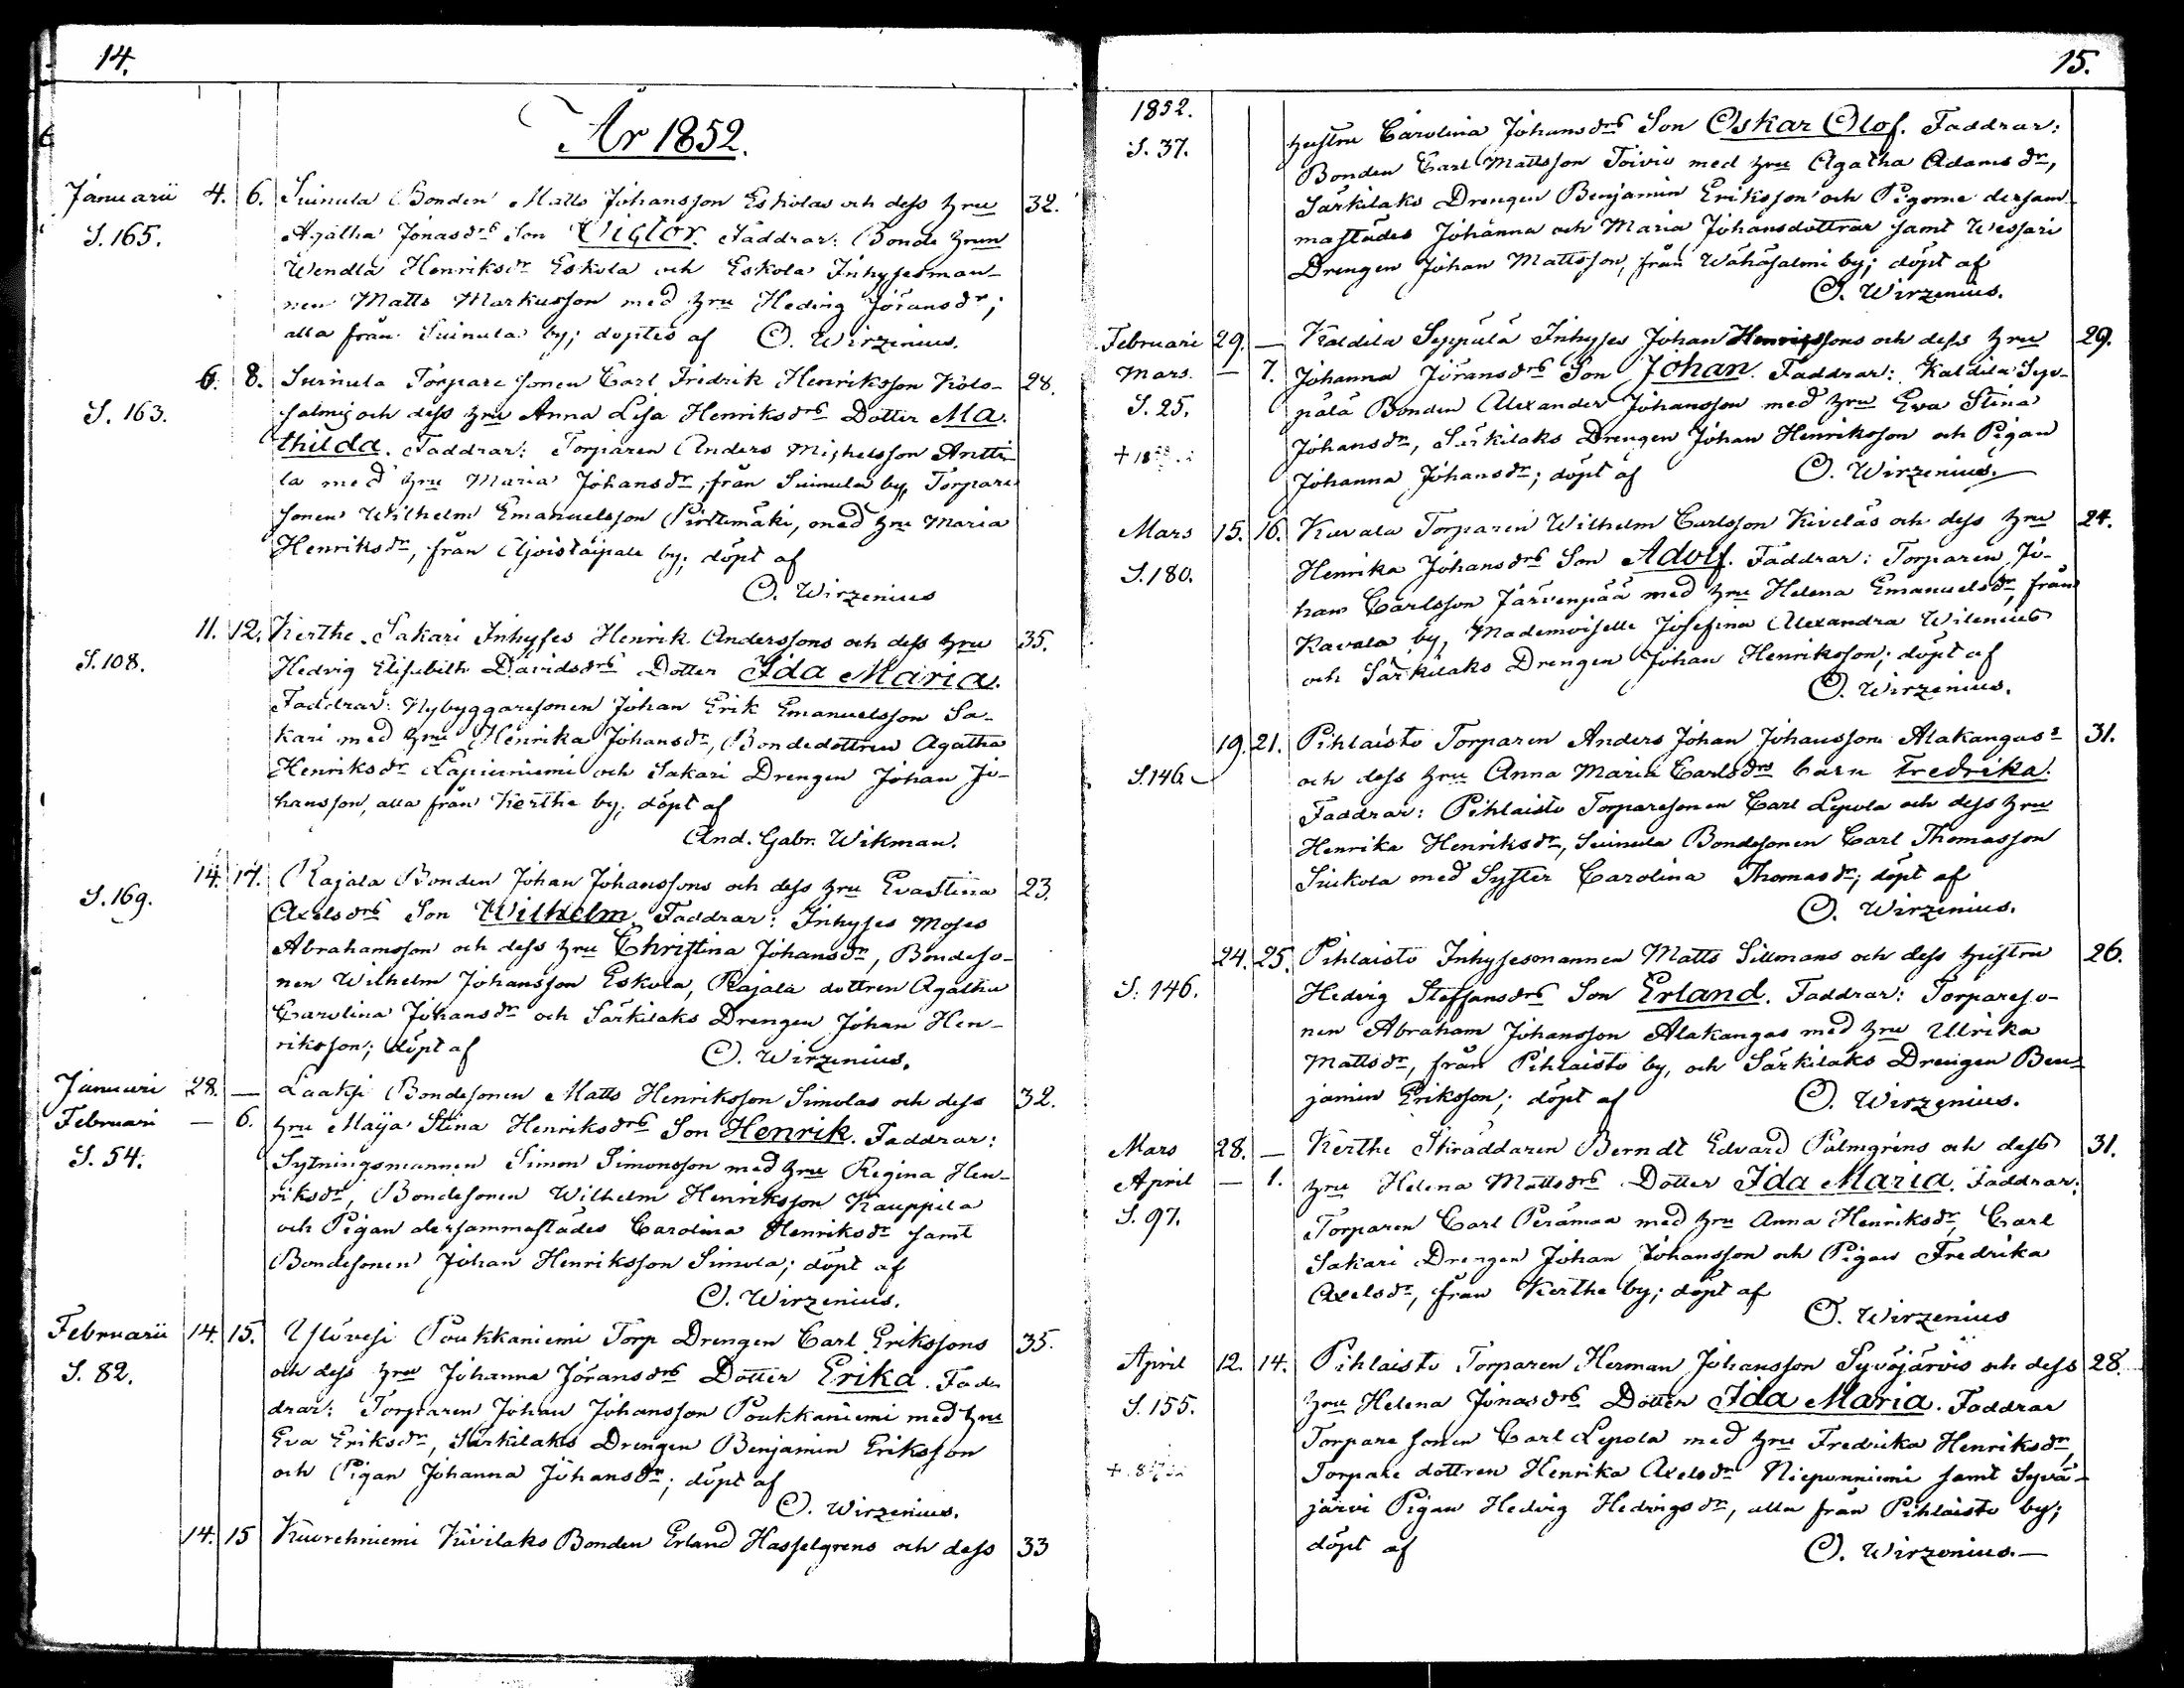 14.
År 1852.
Januarii 4. 6. Suinula Bonden Matts Johansson Eskolas och dess hru 32.
S. 165. Agatha Jonasdrs Son Victor. Faddrar: Bonde hrun
Wendla Henriksdr Eskola och Eskola Inhysesman-
nen Matts Markusson med hru Hedvig Göransdr;
alla från Suinula by; döptes af O. Wirzenius.
6. 8. Suinula Torparesonen Carl Fridrik Henriksson Kols- 28.
S. 163. salmis och dess hru Anna Lisa Henriksdrs Dotter Ma-
thilda. Faddrar: Torparen Anders Michelsson Antti-
la med hru Maria Johansdr, från Suinula by, Torpare
sonen Wilhelm Emanuelsson Pirttimäki, med hru Maria
Henriksdr, från by; döpt af
O. Wirzenius
11. 12. Kerthe Sakari Inhyses Henrik Anderssons och dess hru 35.
S. 108. Hedvig Elisabeth Davidsdrs Dotter Ida Maria.
Faddrar: Nybyggaresonen Johan Erik Emanuelsson Sa-
kari med hru Henrika Johansdr, Bondedottren Agatha
Henriksdr Lapinniemi och Sakari Drengen Johan Jo-
hansson, alla från Kerthe by; döpt af
And. Gabr. Wikman.
14. 17. Rajala Bonden Johan Johanssons och dess hru Evastina 23.
S. 169. Axelsdrs Son Wilhelm. Faddrar: Inhyses Moses
Abrahamsson och dess hru Christina Johansdr, Bondeso-
nen Wilhelm Johansson Eskola, Rajala dottren Agatha
Carolina Johansdr och Särkilaks Drengen Johan Hen-
riksson; döpt af O. Wirzenius.
Januari 28. — Laaksi Bondesonen Matts Henriksson Simolas och dess 32.
Februari — 6. hru Maija Stina Henriksdrs Son Henrik. Faddrar:
S. 54. Sytningsmannen Simon Simonsson med hru Regina Hen-
riksdr, Bondesonen Wilhelm Henriksson Kauppila
och Pigan dersammastädes Carolina Henriksdr samt
Bondesonen Johan Henriksson Simola; döpt af
O. Wirzenius.
Februarii 14. 15. Poukkaniemi Torp Drengen Carl Erikssons 35.
S. 82. och dess hru Johanna Göransdrs Dotter Erika. Fad-
drar: Torparen Johan Johansson Poukkaniemi med hru
Eva Eriksdr, Särkilaks Drengen Benjamin Eriksson
och Pigan Johanna Johansdr; döpt af
O. Wirzenius.
14. 15 Kuorehniemi Kivilaks Bonden Erland Hasselgrens och dess 33
15.
1852.
S. 37. hustru Carolina Johansdrs Son Oskar Olof. Faddrar:
Bonden Carl Mattsson Toivio med hru Agatha Adamsdr,
Särkilaks Drengen Benjamin Eriksson och Pigorne dersam-
mastädes Johanna och Maria Johansdöttrar samt Wessari
Drengen Johan Mattsson, från Wähäsalmi by; döpt af
O. Wirzenius.
Februari 29. — Kaldila Seppälä Inhyses Johan Henrikssons och dess hru 29.
Mars. — 7. Johanna Göransdrs Son Johan. Faddrar: Kaldila Sep-
S. 25. pälä Bonden Alexander Johansson med hru Eva Stina
Johansdr, Särkilaks Drengen Johan Henriksson och Pigan
Johanna Johansdr; döpt af O. Wirzenius.
Mars 15. 16. Kavala Torparen Wilhelm Carlsson Kiveläs och dess hru 24.
S. 180. Henrika Johansdrs Son Adolf. Faddrar: Torparen Jo-
han Carlsson Järvenpää med hru Helena Emanuelsdr, från
Kavala by, Mademoiselle Josefina Alexandra Wilenius
och Särkilaks Drengen Johan Henriksson; döpt af
O. Wirzenius.
19. 21. Pihlaisto Torparen Anders Johan Johansson Alakangas 31.
S. 146. och dess hru Anna Maria Carlsdrs barn Fredrika.
Faddrar: Pihlaisto Torparesonen Carl Lepola och dess hru
Henrika Henriksdr, Suinula Bondesonen Carl Thomasson
Siukola med Syster Carolina Thomasdr; döpt af
O. Wirzenius.
24. 25. Pihlaisto Inhysesmannen Matts Sillmans och dess hustru 26.
S. 146. Hedvig Steffansdrs Son Erland. Faddrar: Torpareso-
nen Abraham Johansson Alakangas med hru Ulrika
Mattsdr, från Pihlaisto by, och Särkilaks Drengen Ben-
jamin Eriksson; döpt af O. Wirzenius.
Mars 28. — Kerthe Skräddaren Berndt Edvard Palmgrens och dess 31.
April — 1. hru Helena Mattsdrs Dotter Ida Maria. Faddrar:
S. 97. Torparen Carl Perämaa med hru Anna Henriksdr, Carl
Sakari Drengen Johan Johansson och Pigan Fredrika
Axelsdr, från Kerthe by; döpt af
O. Wirzenius
April 12. 14. Pihlaisto Torparen Herman Johansson Syväjärvis och dess 28.
S. 155. hru Helena Jonasdrs Dotter Ida Maria. Faddrar
Torparesonen Carl Lepola med hru Fredrika Henriksdr,
Torparedottren Henrika Axelsdr Nieponniemi samt Syvä-
järvi Pigan Hedvig Hedvigsdr, alla från Pihlaisto by;
döpt af O. Wirzenius.—